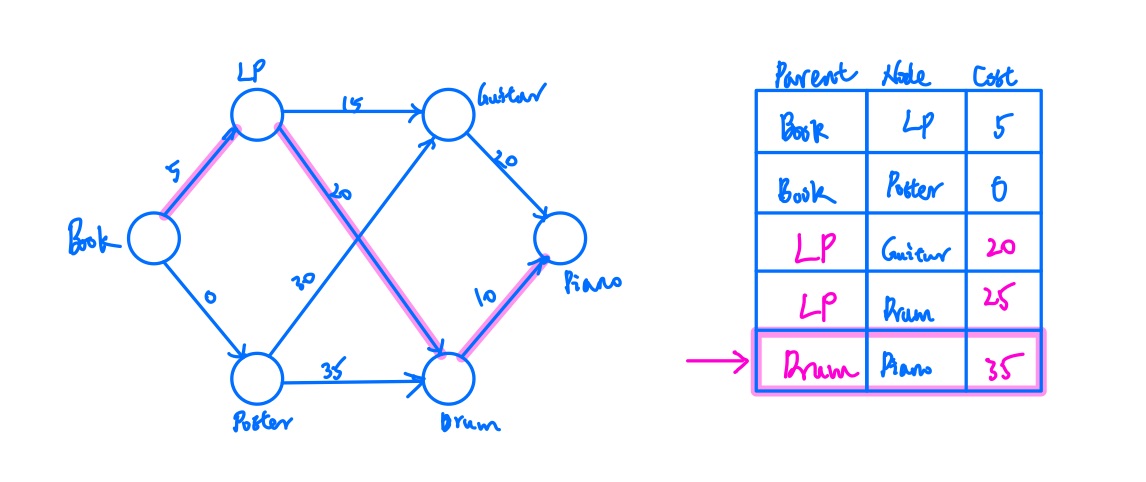 LP
15
Guitar
5
20
20
Book
30
Piano
0
10
35
Poster
Drum
Parent Node Cost
Book LP 5
Book Poster 0
LP Guitar 20
LP Drum 25
Drum Piano 35